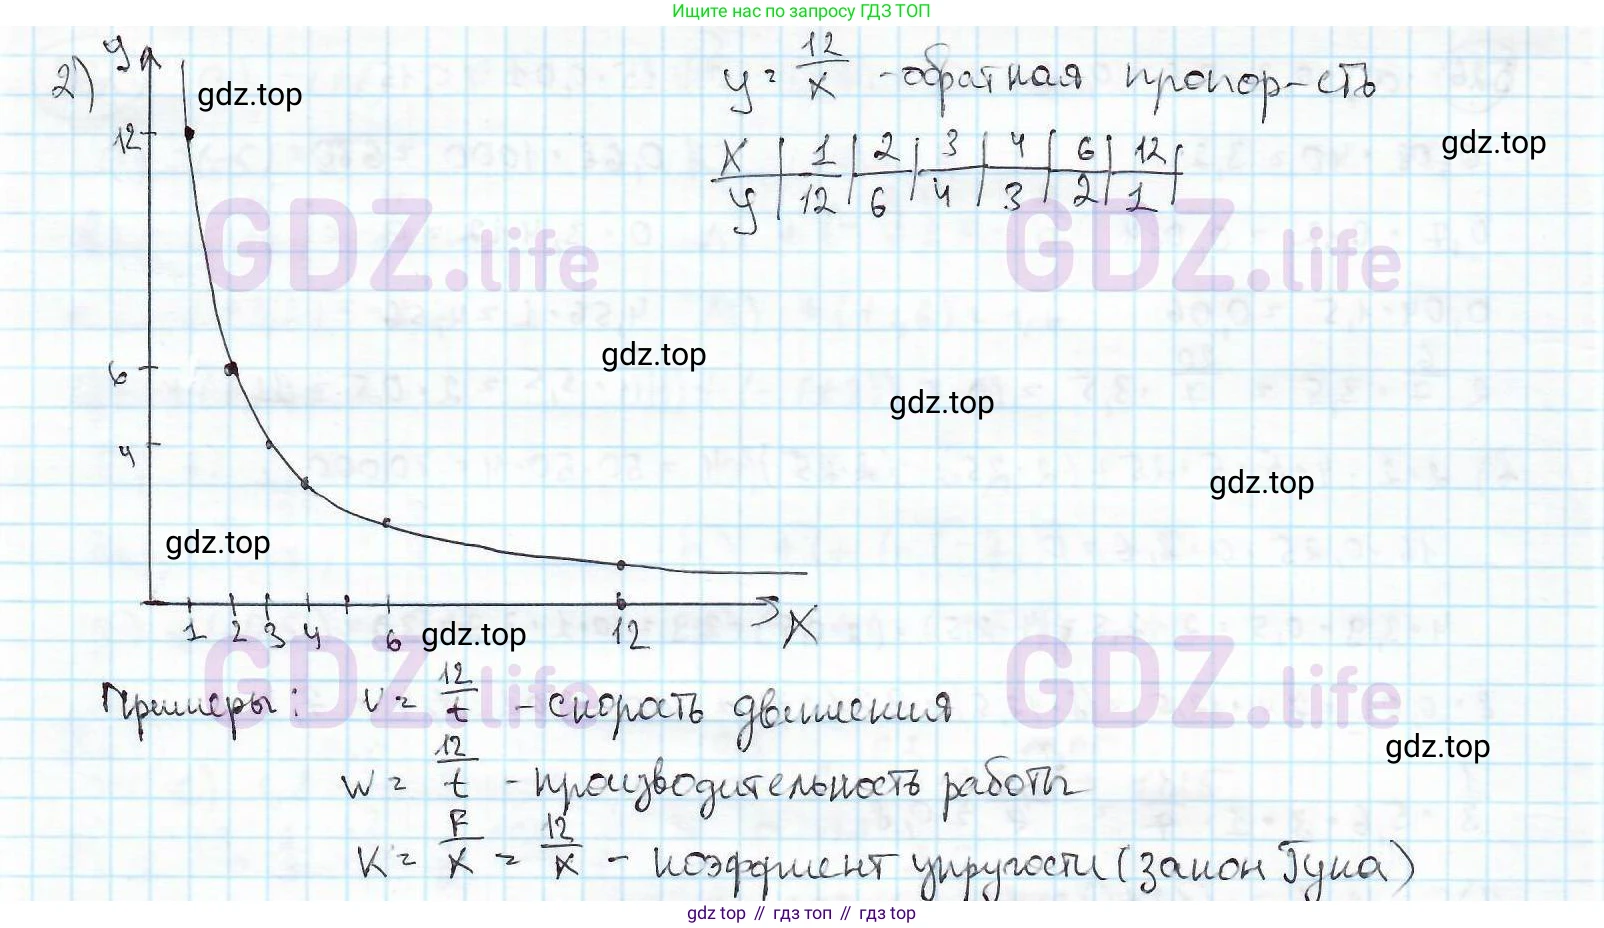 Ищите нас по запросу ГДЗ ТОП
2) y
gdz.top
y = 12/x - обратная пропор-сть
gdz.top
x | 1 | 2 | 3 | 4 | 6 | 12
y | 12 | 6 | 4 | 3 | 2 | 1
12
GDZ.life GDZ.life
gdz.top
6
gdz.top
4
gdz.top
gdz.top
1 2 3 4 6 12 x
gdz.top
GDZ.life GDZ.life
Примеры: v = 12/t - скорость движения
gdz.top
w = 12/t - производительность работы
K = F/x = 12/x - коэффициент упругости (закон Гука)
gdz top // гдз топ // gdz top